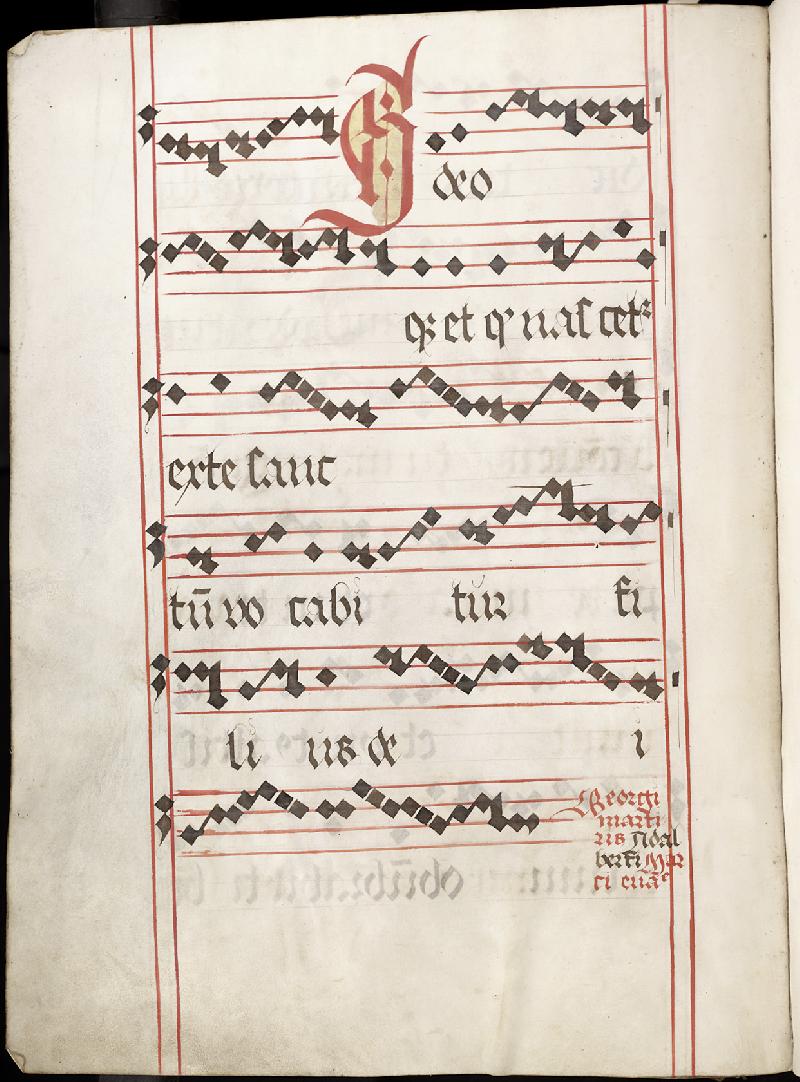 Ideo
qz et qͥ nascetꝛ
exte sanc
tū vo cabi tur fi
li us de i
Georgi
marti
ris Adal
berti Mar
ci euāᵉ